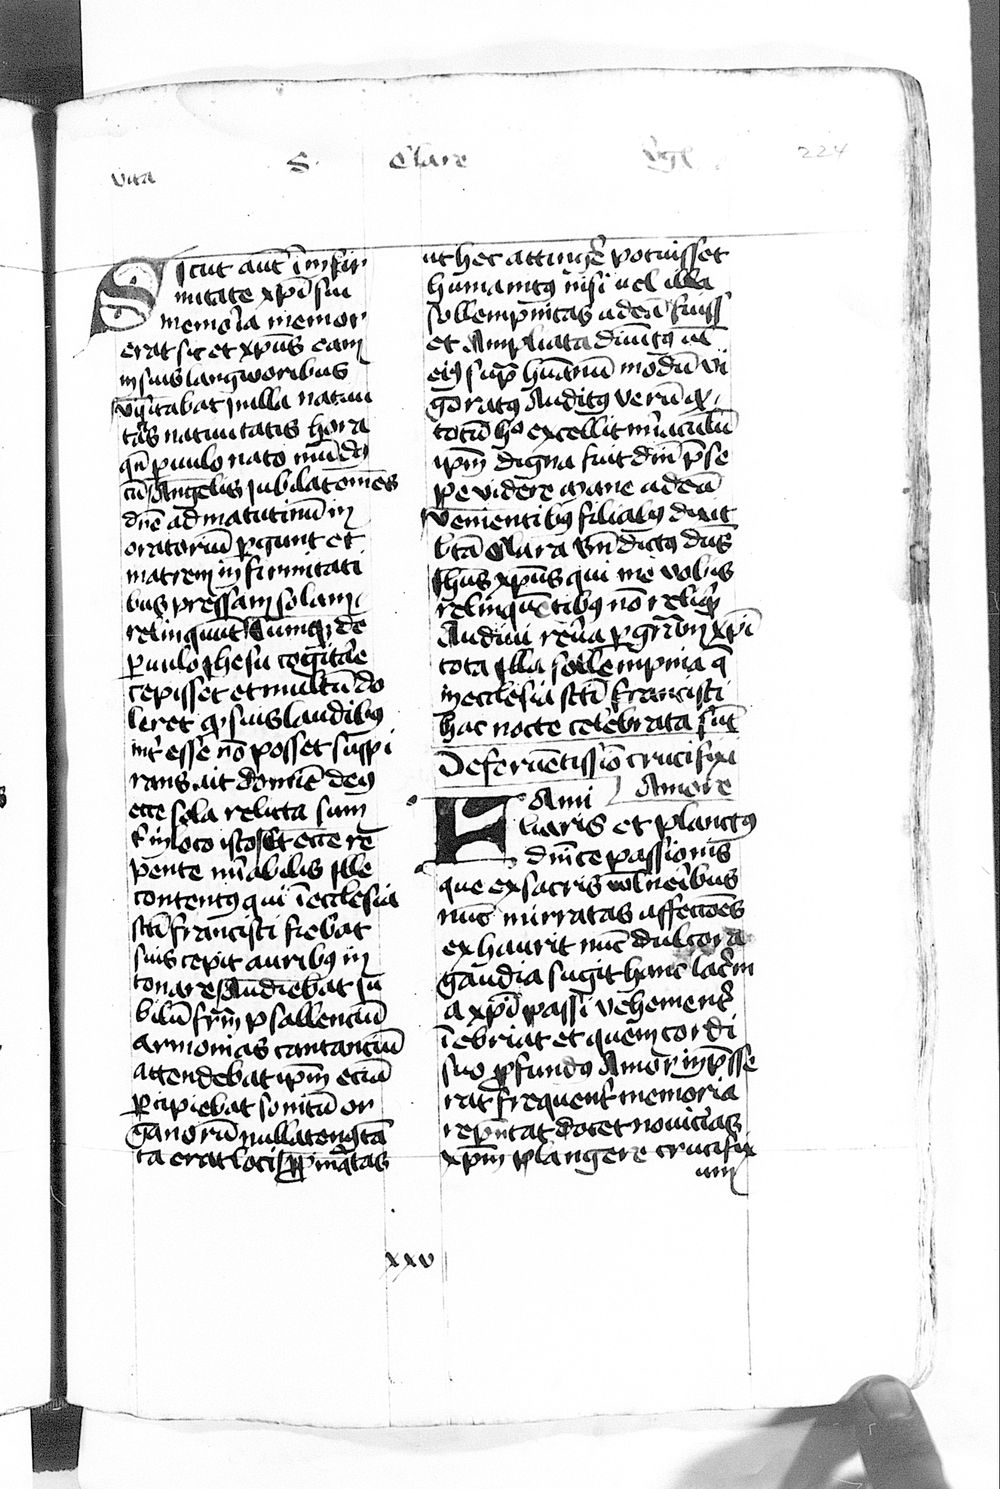 Vita S. Clare 224
Sicut aut̄ ī infir
mitate xp̄i sui
memoria memor
erat sic et xp̄us eam
in suis langworibus
visitabat in illa nativi
tatis nativitatis hora
qn̄ p̱vulo nato mūdꝯ
cū Angelis iubilat om̄es
dn̄e ad matutinū in
oratoriū p̱gunt et
matrem infirmitati
bus pressam solam
relinquūt Cumqꝫ de
p̱vulo Jhesu cogitare
cepisset et multū do
leret qꝫ suis laudibꝰ
int̄esse nō posset suspi
rans ait domine deꝰ
ecce sola relicta sum
t̄ in loco isto Et ecce re
pente mirabilis ille
contentꝰ qui ī ecclesia
scti francisci fiebat
suis cepit auribꝰ in
tonare Audiebat iu
bilū fr̄m psallenciū
armonias cantanciū
attendebat ip̄m eciā
p̱cipiebat sonitū or
ganorū nullatenꝰ tā
ta erat loci p̱pinq̄tas
ut hec attingere potuisset
humanitꝰ nisi vel illa
sollempnitas ad eā fuiss̄
et Ampliata divinitꝰ vel
eiꝰ sup̱ humanū modū vi
goratꝰ Auditꝰ verū qꝫ
totū hoc excellit miraculū
ip̄m digna fuit dn̄i p̱se
pe videre Mane ad eā
venientibꝰ filiabꝰ dixit
bt̄a Clara bn̄dictꝰ dn̄s
Jhūs xp̄us qui me vobis
relinquētibꝰ nō reliq̄t
Audivi rev̄a p̱ gr̄am xp̄i
tota illa sollempnia q̄
in ecclesia scti francisci
hac nocte celebrata sūt
De ferventissīo crucifixi
Amore
Fami
liaris et planctꝰ
dn̄ice passionis
que ex sacris volneribus
nūc mirratas affecciōes
exhaurit nūc dulcora
gaudia sugit hanc lacrim
a xp̄i passi vehement̄
īebriat et quem cordi
suo p̱fundꝰ Amor inp̄sse
rat frequent̄ memoria
rep̄ntat docet novicias
xp̄m plangere crucifix
um
xxv